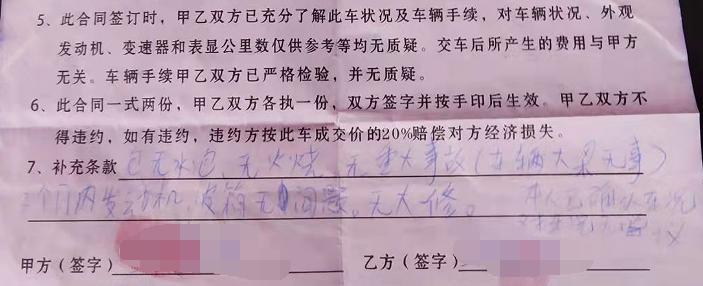 5、此合同签订时，甲乙双方已充分了解此车状况及车辆手续，对车辆状况、外观
发动机、变速器和表显公里数仅供参考等均无质疑。交车后所产生的费用与甲方
无关。车辆手续甲乙双方已严格检验，并无质疑。
6、此合同一式两份，甲乙双方各执一份，双方签字并按手印后生效。甲乙双方不
得违约，如有违约，违约方按此车成交价的20%赔偿对方经济损失。
7、补充条款 包无水泡，无火烧，无重大事故（车辆大梁无事）
个月内发动机，波箱无问题。无大修。 本人已确认车况
对车况无异议
甲方（签字） 乙方（签字）